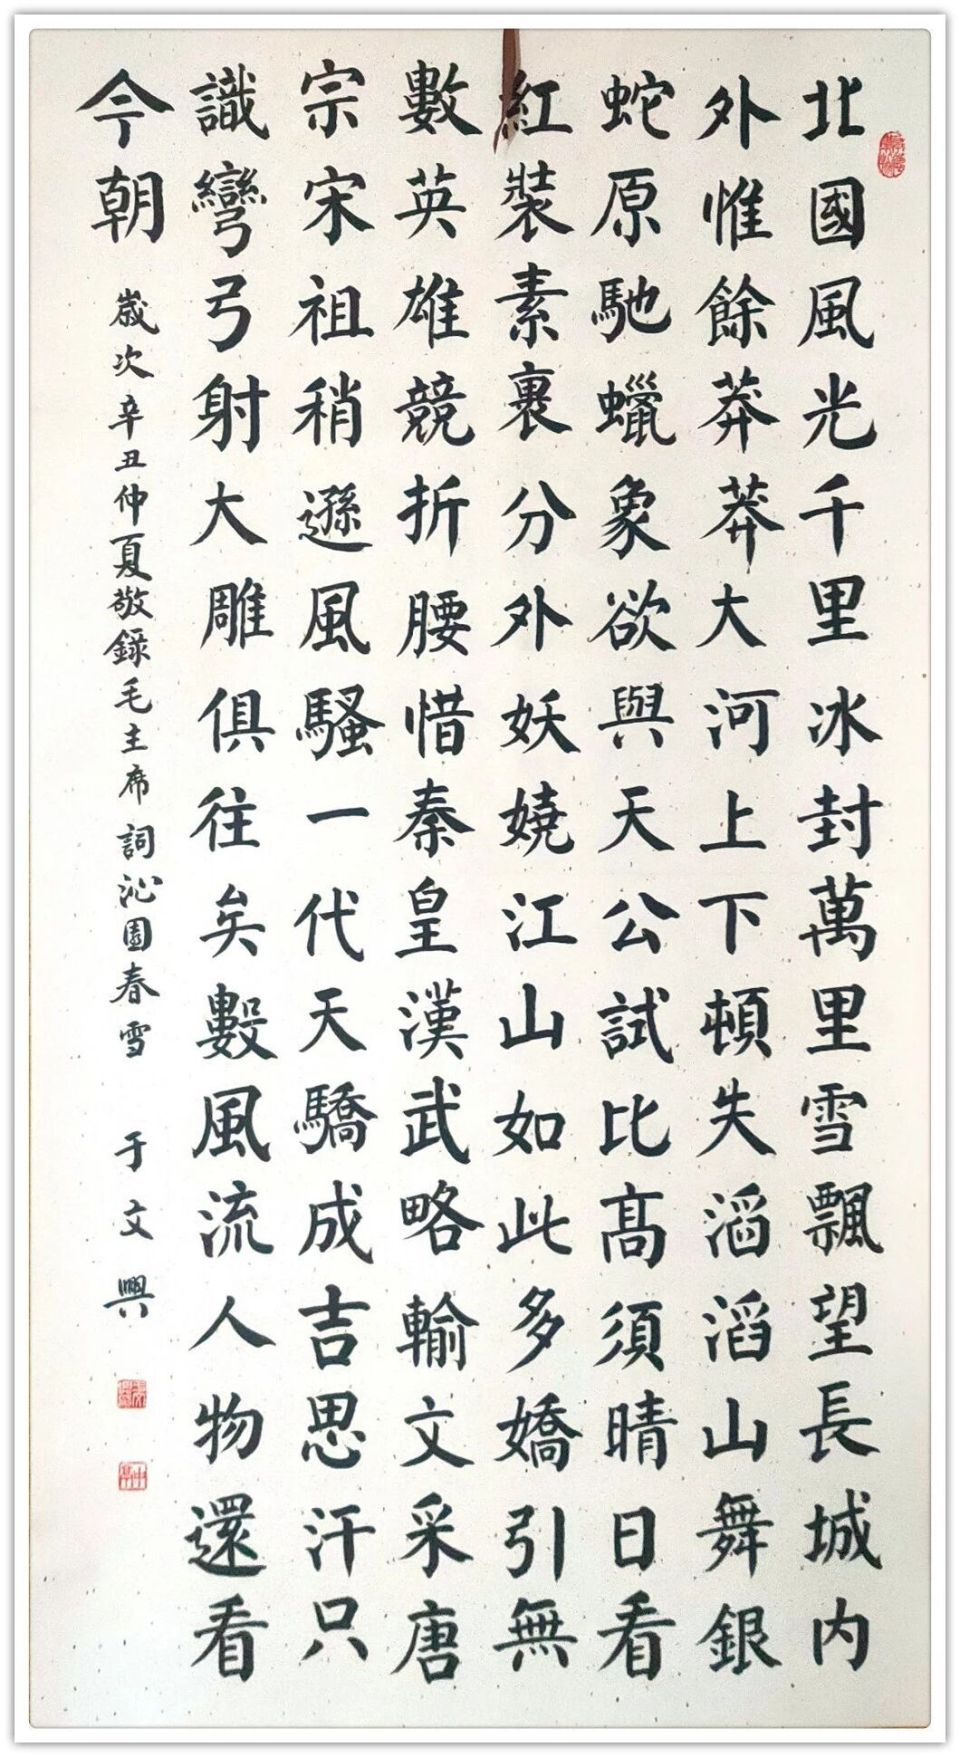 北國風光千里冰封萬里雪飄望長城内
外惟餘莽莽大河上下頓失滔滔山舞銀
蛇原馳蠟象欲與天公試比高須晴日看
紅裝素裹分外妖嬈江山如此多嬌引無
數英雄競折腰惜秦皇漢武略輸文采唐
宗宋祖稍遜風騷一代天驕成吉思汗只
識彎弓射大雕俱往矣數風流人物還看
今朝
歲次辛丑仲夏敬錄毛主席詞沁園春雪
于文興